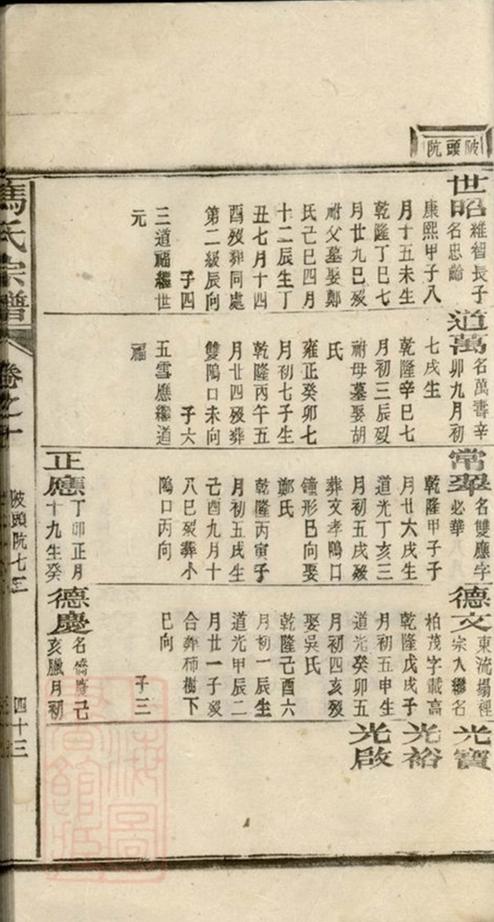 陂頭阬
世昭
維智長子
名忠齡
康熙甲子八
月十五未生
乾隆丁巳七
月廿九巳歿
祔父墓娶鄭
氏己巳四月
十二辰生丁
丑七月十四
酉歿葬同處
第二級辰向
子四
三道福繼世
元
道萬
名萬壽辛
卯九月初
七戌生
乾隆辛巳七
月初三辰歿
祔母墓娶胡
氏
雍正癸卯七
月初七子生
乾隆丙午五
月廿四歿葬
雙隝口未向
子六
五雪應繼道
福
常翠
名雙應字
必華
乾隆甲子子
月廿六戌生
道光丁亥三
月初五戌歿
葬文孝隝口
鐘形巳向娶
鄭氏
乾隆丙寅子
月初五戌生
己酉九月十
八巳歿葬小
隝口丙向
正應
丁卯正月
十九生癸
德文
東流場徑
宗人繼名
柏茂字載高
乾隆戊戌子
月初五申生
道光癸卯五
月初四亥歿
娶吳氏
乾隆己酉六
月初一辰生
道光甲辰二
月廿一子歿
合葬柿樹下
巳向
子三
德慶
名
己
亥臘月初
光寶
光裕
光啟
馮氏宗譜
卷之十
陂頭阬七三
四十三